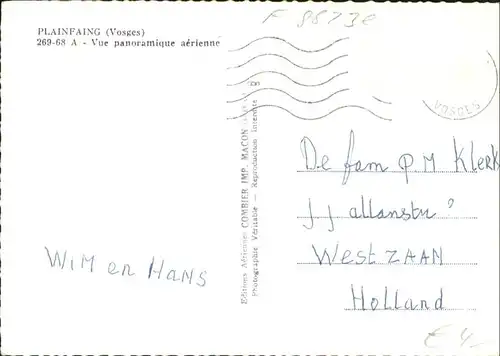 PLAINFAING (Vosges)
269-68 A - Vue panoramique aérienne
F 88230
VOSGES
Editions Aériennes COMBIER IMP. MACON
Photographie Véritable — Reproduction interdite
De fam P M Klerk
J J allanstr
WESTZAAN
Holland
WIM en HANS